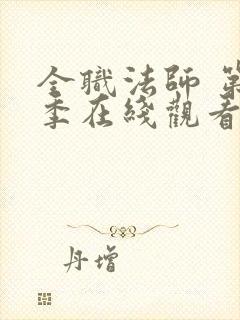 全職法師 第
季在綫觀看
丹增